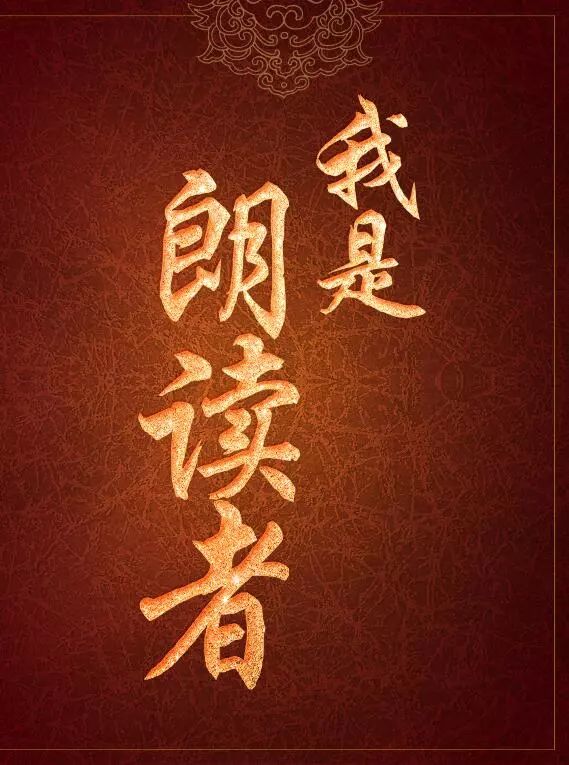 我是
朗读者